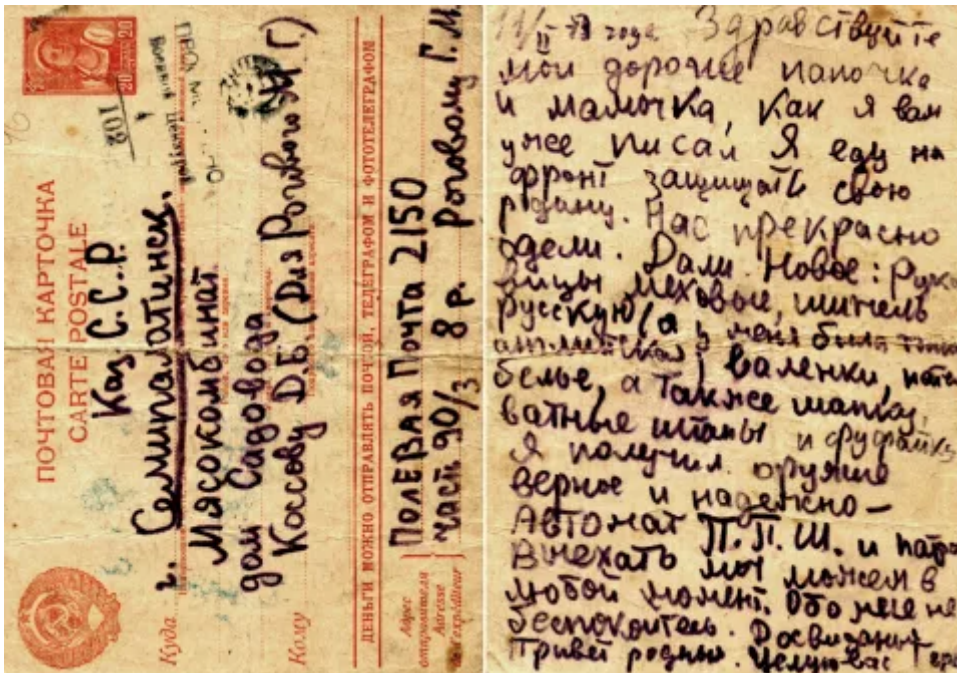 ПОЧТОВАЯ КАРТОЧКА
CARTE POSTALE
20
20
108
ПРОСМ
Военной Цензурой
Куда
Каз. С.С.Р.
г. Семипалатинск.
Мясокомбинат
дом Садовода
Кому
Кассову Д.Б. (Для Рогового М.Г.)
ДЕНЬГИ МОЖНО ОТПРАВЛЯТЬ ПОЧТОЙ, ТЕЛЕГРАФОМ И ФОТОТЕЛЕГРАФОМ
Адрес
отправителя
Adresse
de l'expéditeur
ПолЕВАЯ ПоЧТА 2150
часть 90/3 8 р. Роговому Г.М.
11/II 43 года. Здравствуйте
мои дорогие папочка
и мамочка, Как я вам
уже писал Я еду на
фронт защищать свою
родину. Нас прекрасно
одели. Дали Новое: Рука
вицы меховые, шинель
русскую (а у меня была
английская), валенки,
белье, а также шапку,
ватные штаны и фуфайку
Я получил оружие
верное и надежно —
Автомат П.П.Ш. и патро
Выехать мы можем в
любой момент. Обо мне не
беспокоитесь. Досвидания
Привет родным. Целую вас